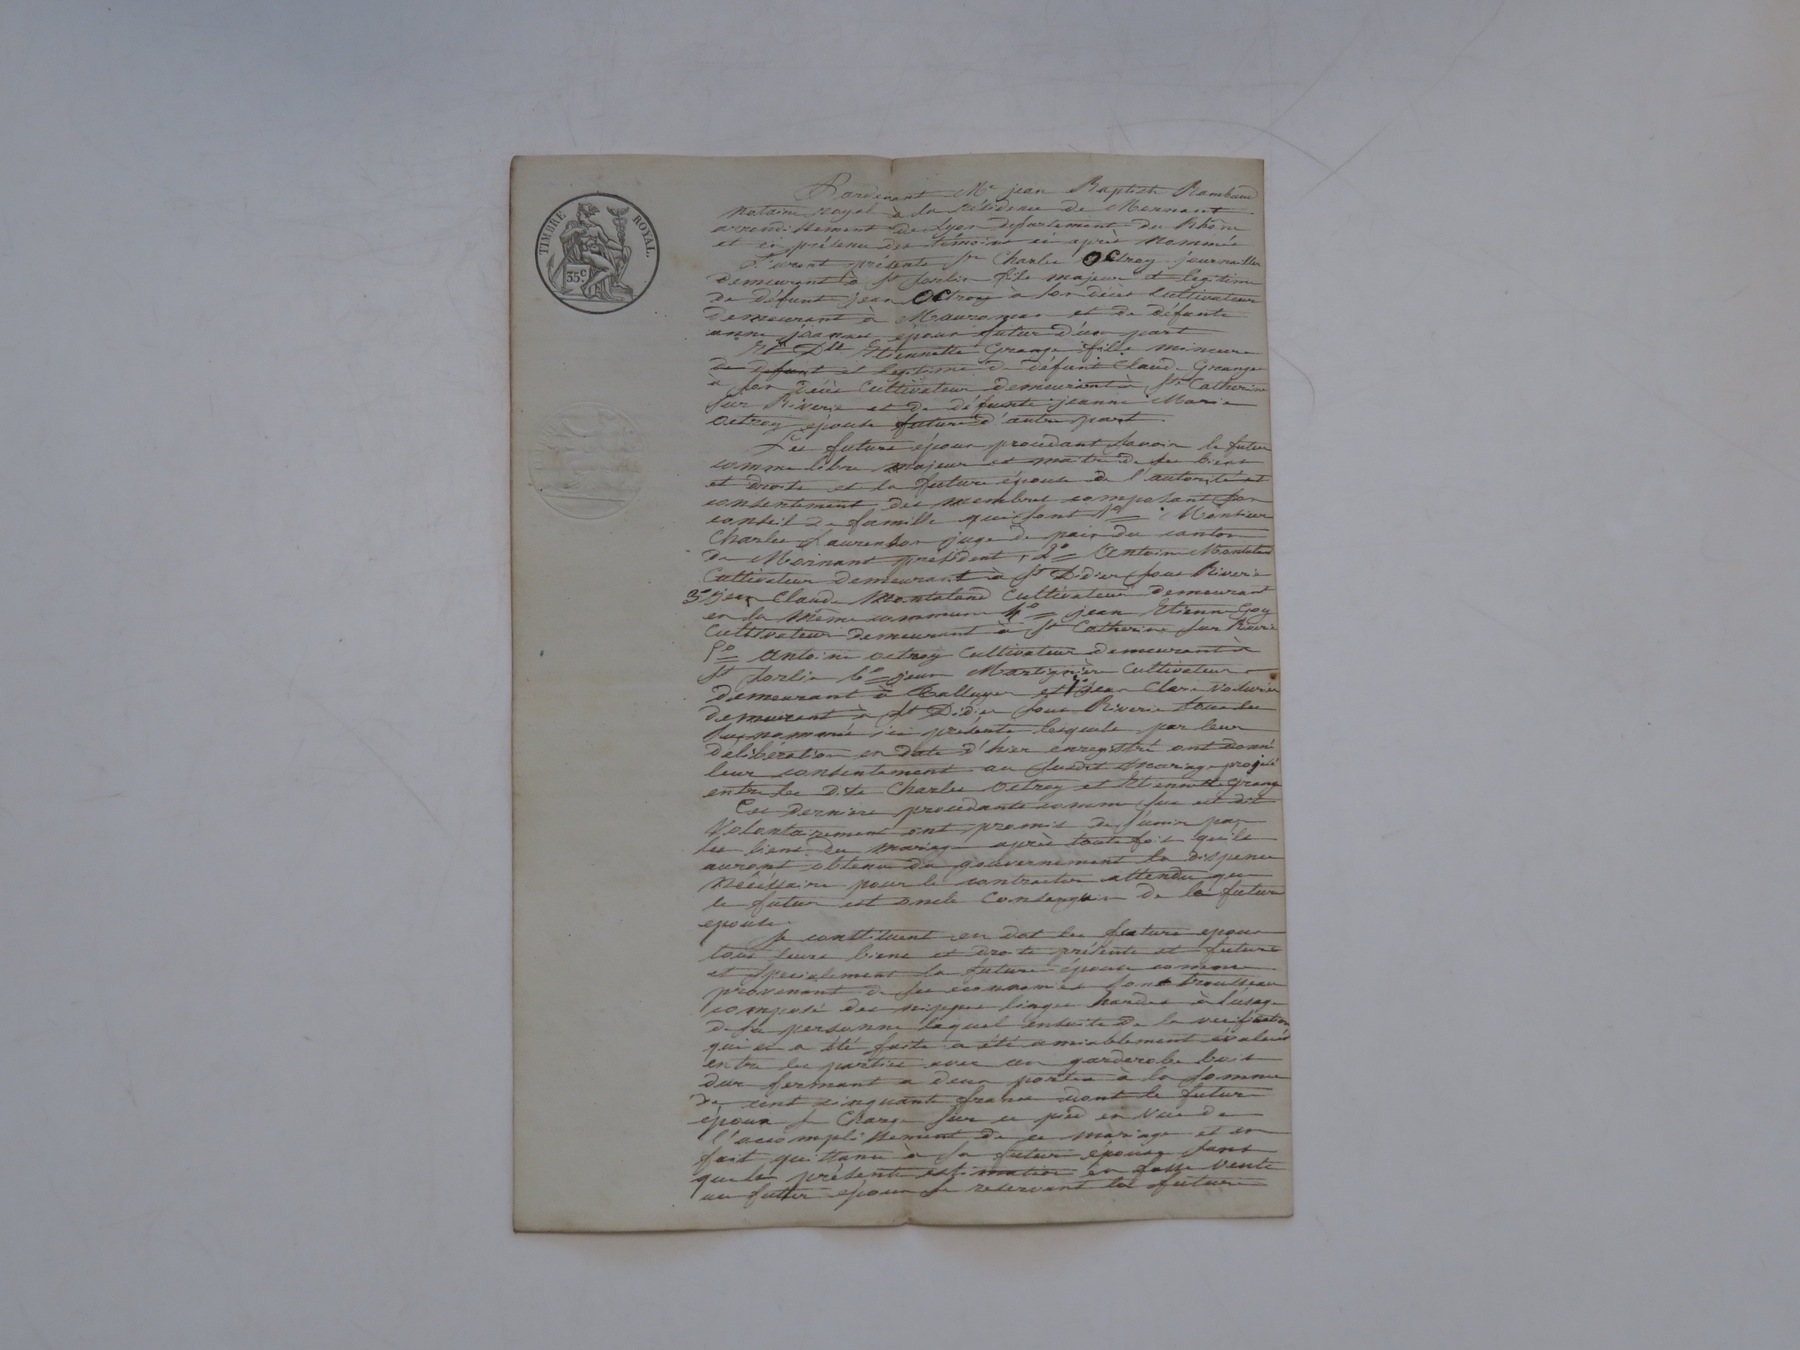 TIMBRE ROYAL
35 c.
Pardevant Me jean Baptiste Rambaud
notaire royal à la résidence de Mornant
arrondissement de Lyon département du Rhône
et en présence des témoins ci après nommés
Furent présents sr Charles Octroy journallier
demeurant à St Sorlin fils majeur et legitime
de défunt jean Octroy à son décès Cultivateur
demeurant à et de défunte
anne époux futur d'une part
Et Dlle Etiennette Grange fille mineure
et legitime de défunt Claude Grange
à son décès Cultivateur demeurant à Ste Catherine
sur Riverie et de défunte jeanne Marie
octroy épouse future d'autre part.
Les futurs époux procédant savoir le futur
comme libre majeur et maitre de ses biens
et droits et la future épouse de l'autorité et
consentement des membres composant son
conseil de famille qui sont 1o Monsieur
Charles Laurenson juge de paix du canton
de Mornant président, 2o Antoine Montaland
Cultivateur demeurant à St Didier sous Riverie
3o jean Claude Montaland Cultivateur demeurant
en la même commune 4o jean Etienne Goy
Cultivateur demeurant à Ste Catherine sur Riverie
5o Antoine octroy Cultivateur demeurant à
St Sorlin 6o jean Martignière Cultivateur
demeurant à Talluyer et 7o jean Clare voiturier
demeurant à St Didier sous Riverie tous les
susnommés ici présents lesquels par leur
délibération en date d'hier enregistré ont donné
leur consentement au susdit mariage projeté
entre les dits Charles Octroy et Etiennette Grange
Ces derniers procédants comme sus est dit
Volontairement ont promis de s'unir par
les liens du mariage après toute fois qu'ils
auront obtenu du gouvernement la dispense
nécéssaire pour le contracter attendu que
le futur est oncle Consanguin de la future
epouse.
Se constituent en dot les futurs epoux
tous leurs biens et droits présents et futurs
et specialement la future épouse comme
provenant de ses économies son trousseau
composé des nippes linges hardes à l'usage
de sa personne lequel ensuite de la verification
qui en a été faite a été amiablement évalués
entre les parties avec un garderobe bois
dur fermant a deux portes à la somme
de cent cinquante francs dont le futur
époux se Charge sur ce pied en vue de
l'accomplissement de ce mariage et en
fait quittance à sa future épouse sans
que la présente estimation en fasse vente
au futur époux se reservant la future